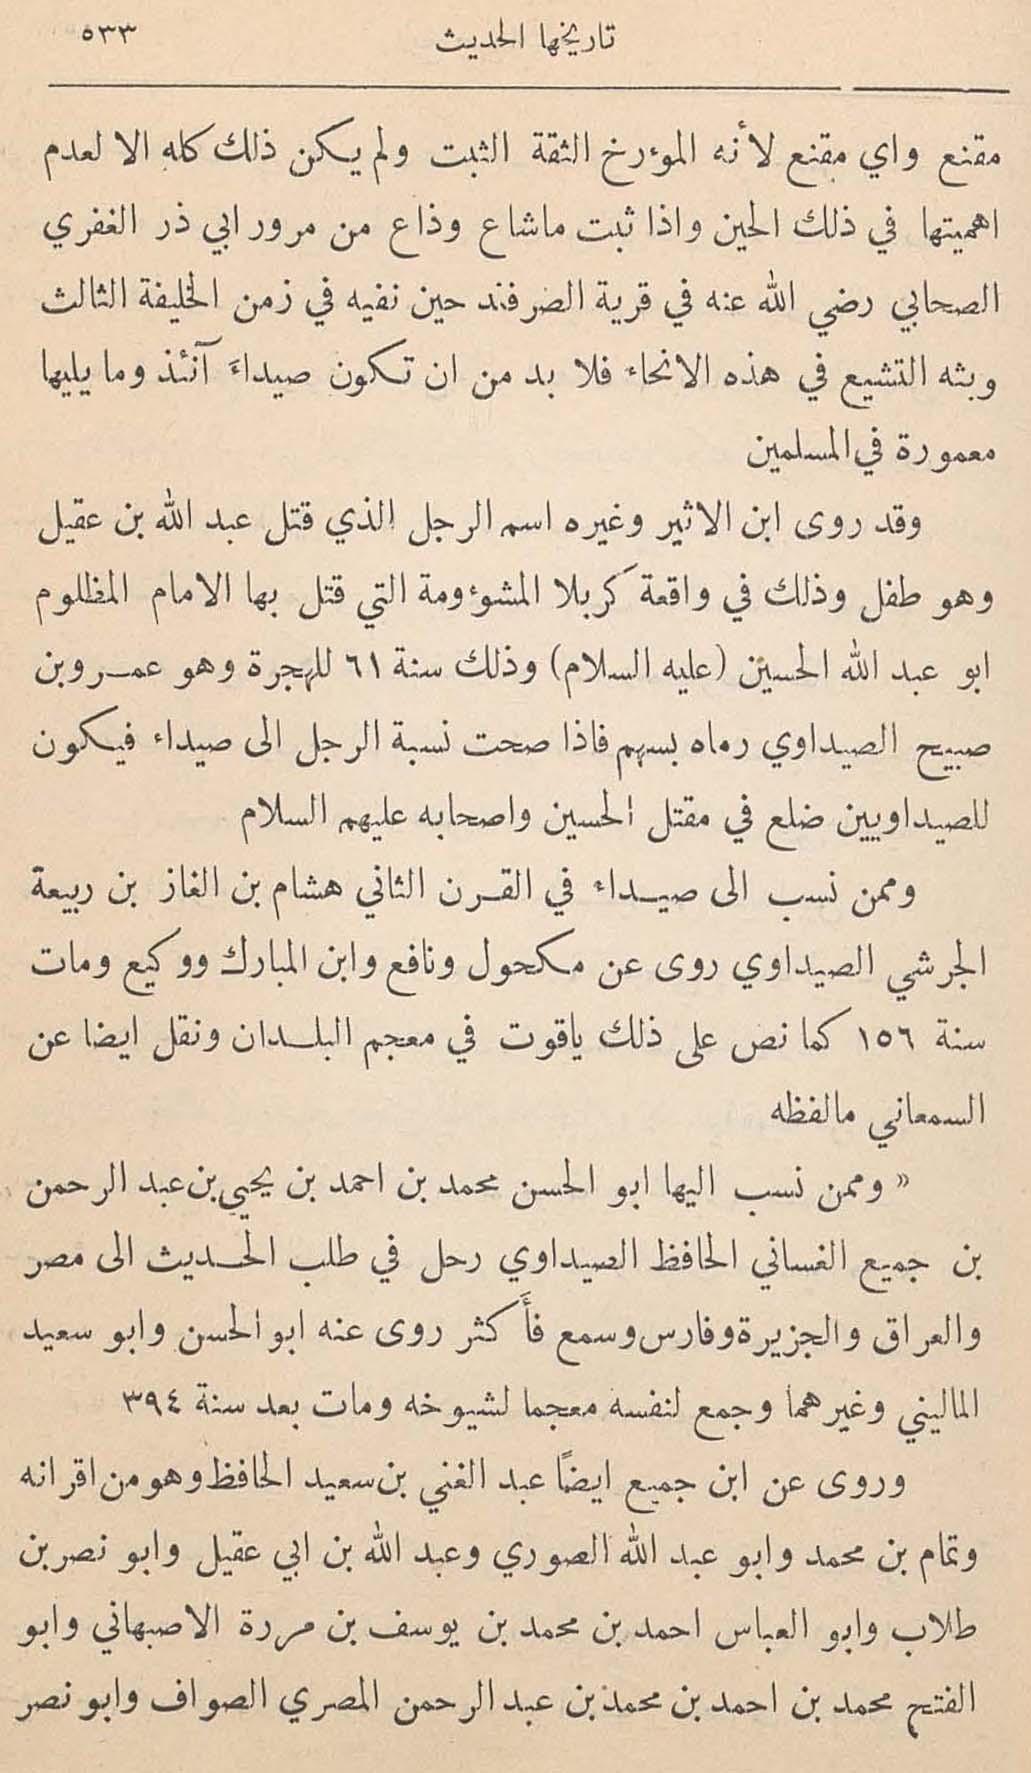 تاريخها الحديث ٥٣٣
مقنع واي مقنع لأنه المؤرخ الثقة الثبت ولم يكن ذلك كله الا لعدم
اهميتها في ذلك الحين واذا ثبت ماشاع وذاع من مرور ابي ذر الغفري
الصحابي رضي الله عنه في قرية الصرفند حين نفيه في زمن الخليفة الثالث
وبثه التشيع في هذه الانحاء فلا بد من ان تكون صيداءَ آنئذ وما يليها
معمورة في المسلمين
وقد روى ابن الاثير وغيره اسم الرجل الذي قتل عبد الله بن عقيل
وهو طفل وذلك في واقعة كربلا المشؤومة التي قتل بها الامام المظلوم
ابو عبد الله الحسين (عليه السلام) وذلك سنة ٦١ للهجرة وهو عمرو بن
صبيح الصيداوي رماه بسهم فاذا صحت نسبة الرجل الى صيداء فيكون
للصيداويين ضلع في مقتل الحسين واصحابه عليهم السلام
وممن نسب الى صيداء في القرن الثاني هشام بن الغاز بن ربيعة
الجرشي الصيداوي روى عن مكحول ونافع وابن المبارك ووكيع ومات
سنة ١٥٦ كما نص على ذلك ياقوت في معجم البلدان ونقل ايضا عن
السمعاني مالفظه
» وممن نسب اليها ابو الحسن محمد بن احمد بن يحيي بن عبد الرحمن
بن جميع الغساني الحافظ الصيداوي رحل في طلب الحديث الى مصر
والعراق والجزيرة وفارس وسمع فأَكثر روى عنه ابو الحسن وابو سعيد
الماليني وغيرهما وجمع لنفسه معجما لشيوخه ومات بعد سنة ٣٩٤
وروى عن ابن جميع ايضًا عبد الغني بن سعيد الحافظ وهو من اقرانه
وتمام بن محمد وابو عبد الله الصوري وعبد الله بن ابي عقيل وابو نصر بن
طلاب وابو العباس احمد بن محمد بن يوسف بن مردة الاصبهاني وابو
الفتح محمد بن احمد بن محمد بن عبد الرحمن المصري الصواف وابو نصر